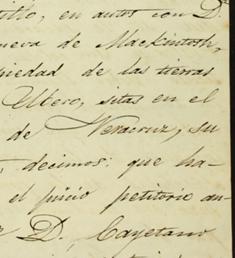 illo, en autos con D.
ueva de Mackintosh,
piedad de las tierras
Ubero, sitas en el
de Veracruz, su
decimos: que ha-
el juicio petitorio an-
D. Cayetano